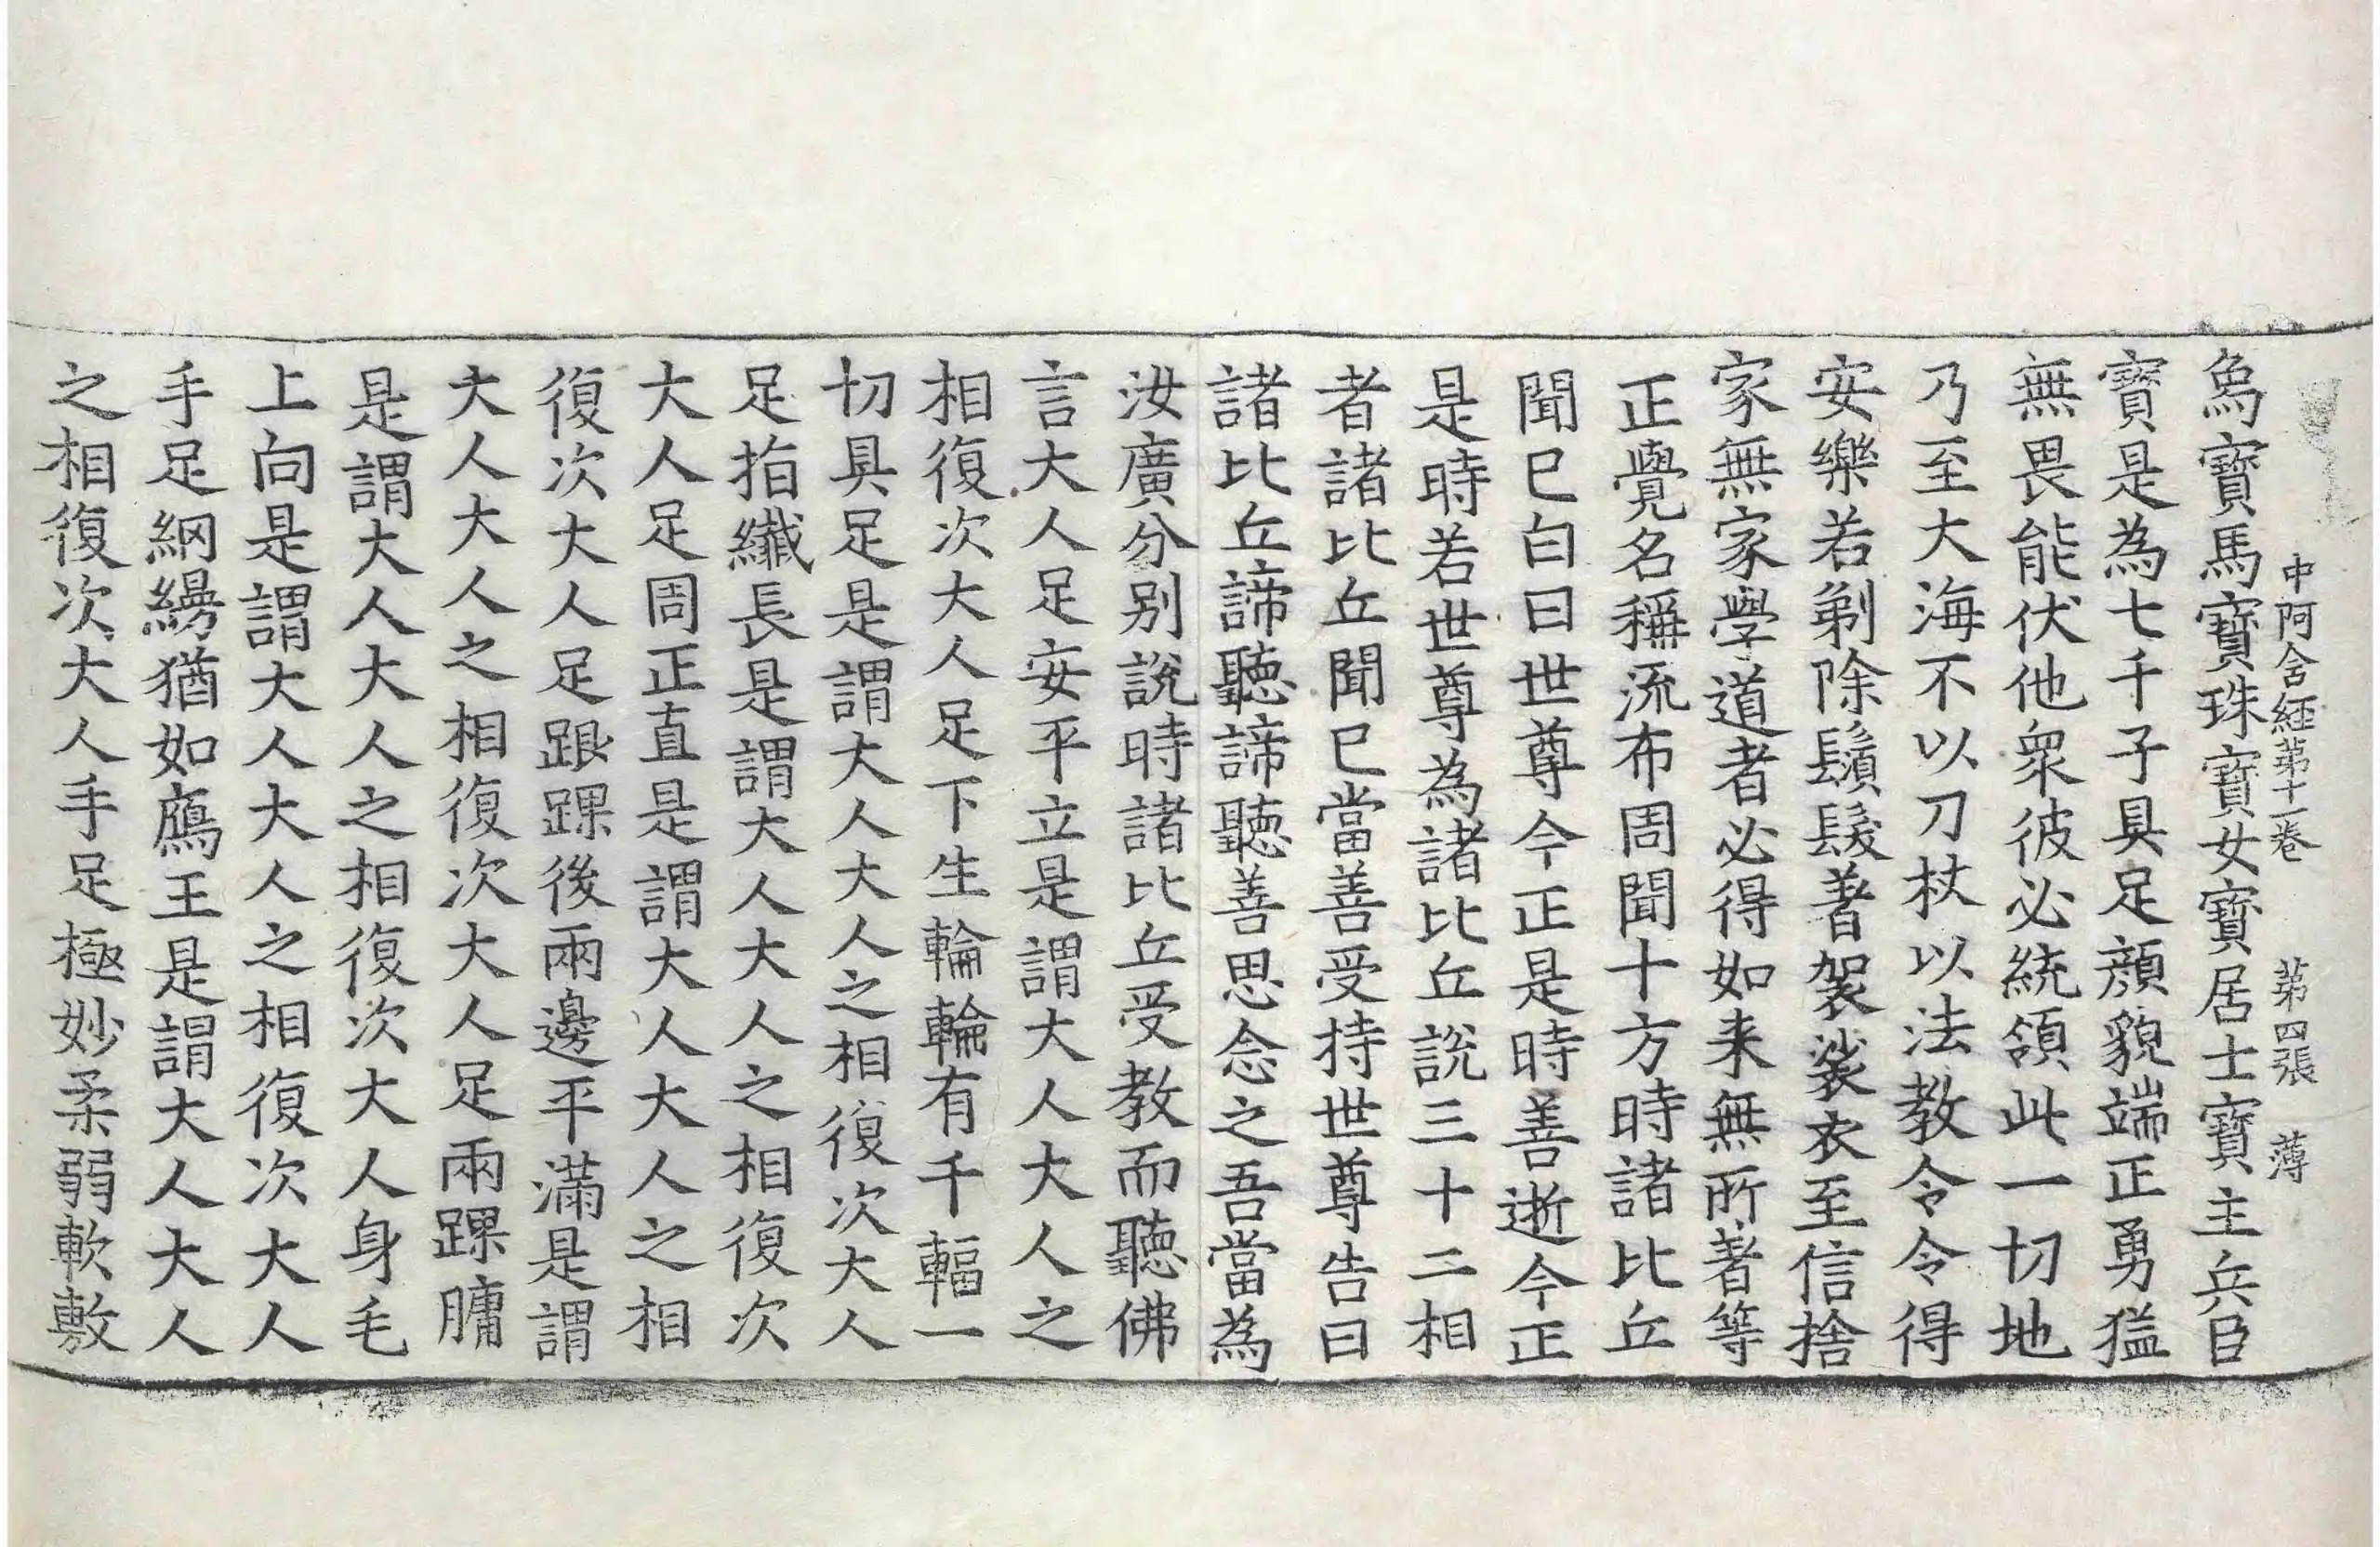 中阿含經第十一卷 第四張 薄
象寶馬寶珠寶女寶居士寶主兵臣
寶是為七千子具足顔貌端正勇猛
無畏能伏他衆彼必統領此一切地
乃至大海不以刀杖以法教令令得
安樂若剃除鬚髮著袈裟衣至信捨
家無家學道者必得如来無所著等
正覺名稱流布周聞十方時諸比丘
聞已白曰世尊今正是時善逝今正
是時若世尊為諸比丘說三十二相
者諸比丘聞已當善受持世尊告曰
諸比丘諦聽諦聽善思念之吾當為
汝廣分別說時諸比丘受教而聽佛
言大人足安平立是謂大人大人之
相復次大人足下生輪輪有千輻一
切具足是謂大人大人之相復次大人
足指纖長是謂大人大人之相復次
大人足周正直是謂大人大人之相
復次大人足跟踝後兩邊平滿是謂
大人大人之相復次大人足兩踝𦟛
是謂大人大人之相復次大人身毛
上向是謂大人大人之相復次大人
手足網縵猶如鴈王是謂大人大人
之相復次大人手足極妙柔弱軟敷